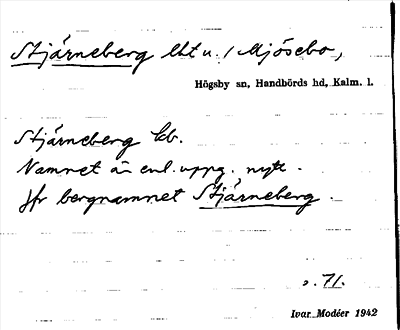 Stjärneberg lht u. / Mjösebo,
Högsby sn, Handbörds hd, Kalm. l.
Stjärneberg kb.
Namnet är enl. uppg. nytt.
Jfr bergnamnet Stjärneberg.
s. 71.
Ivar Modéer 1942